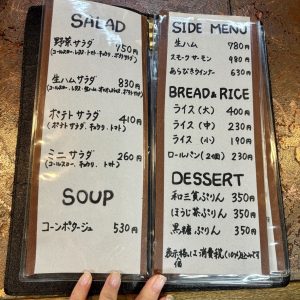 SALAD
野菜サラダ 950円
生ハムサラダ 830円
ポテトサラダ 410円
(ポテトサラダ、キュウリ、トマト)
ミニサラダ 260円
(コールスロー、キュウリ、トマト)
SOUP
コーンポタージュ 530円
SIDE MENU
生ハム 980円
スモークサーモン 980円
あらびきウインナー 630円
BREAD & RICE
ライス(大) 400円
ライス(中) 230円
ライス(小) 190円
ロールパン(2個) 230円
DESSERT
和三盆ぷりん 350円
ほうじ茶ぷりん 350円
黒糖ぷりん 350円
表示価格には消費税(10%)込みです